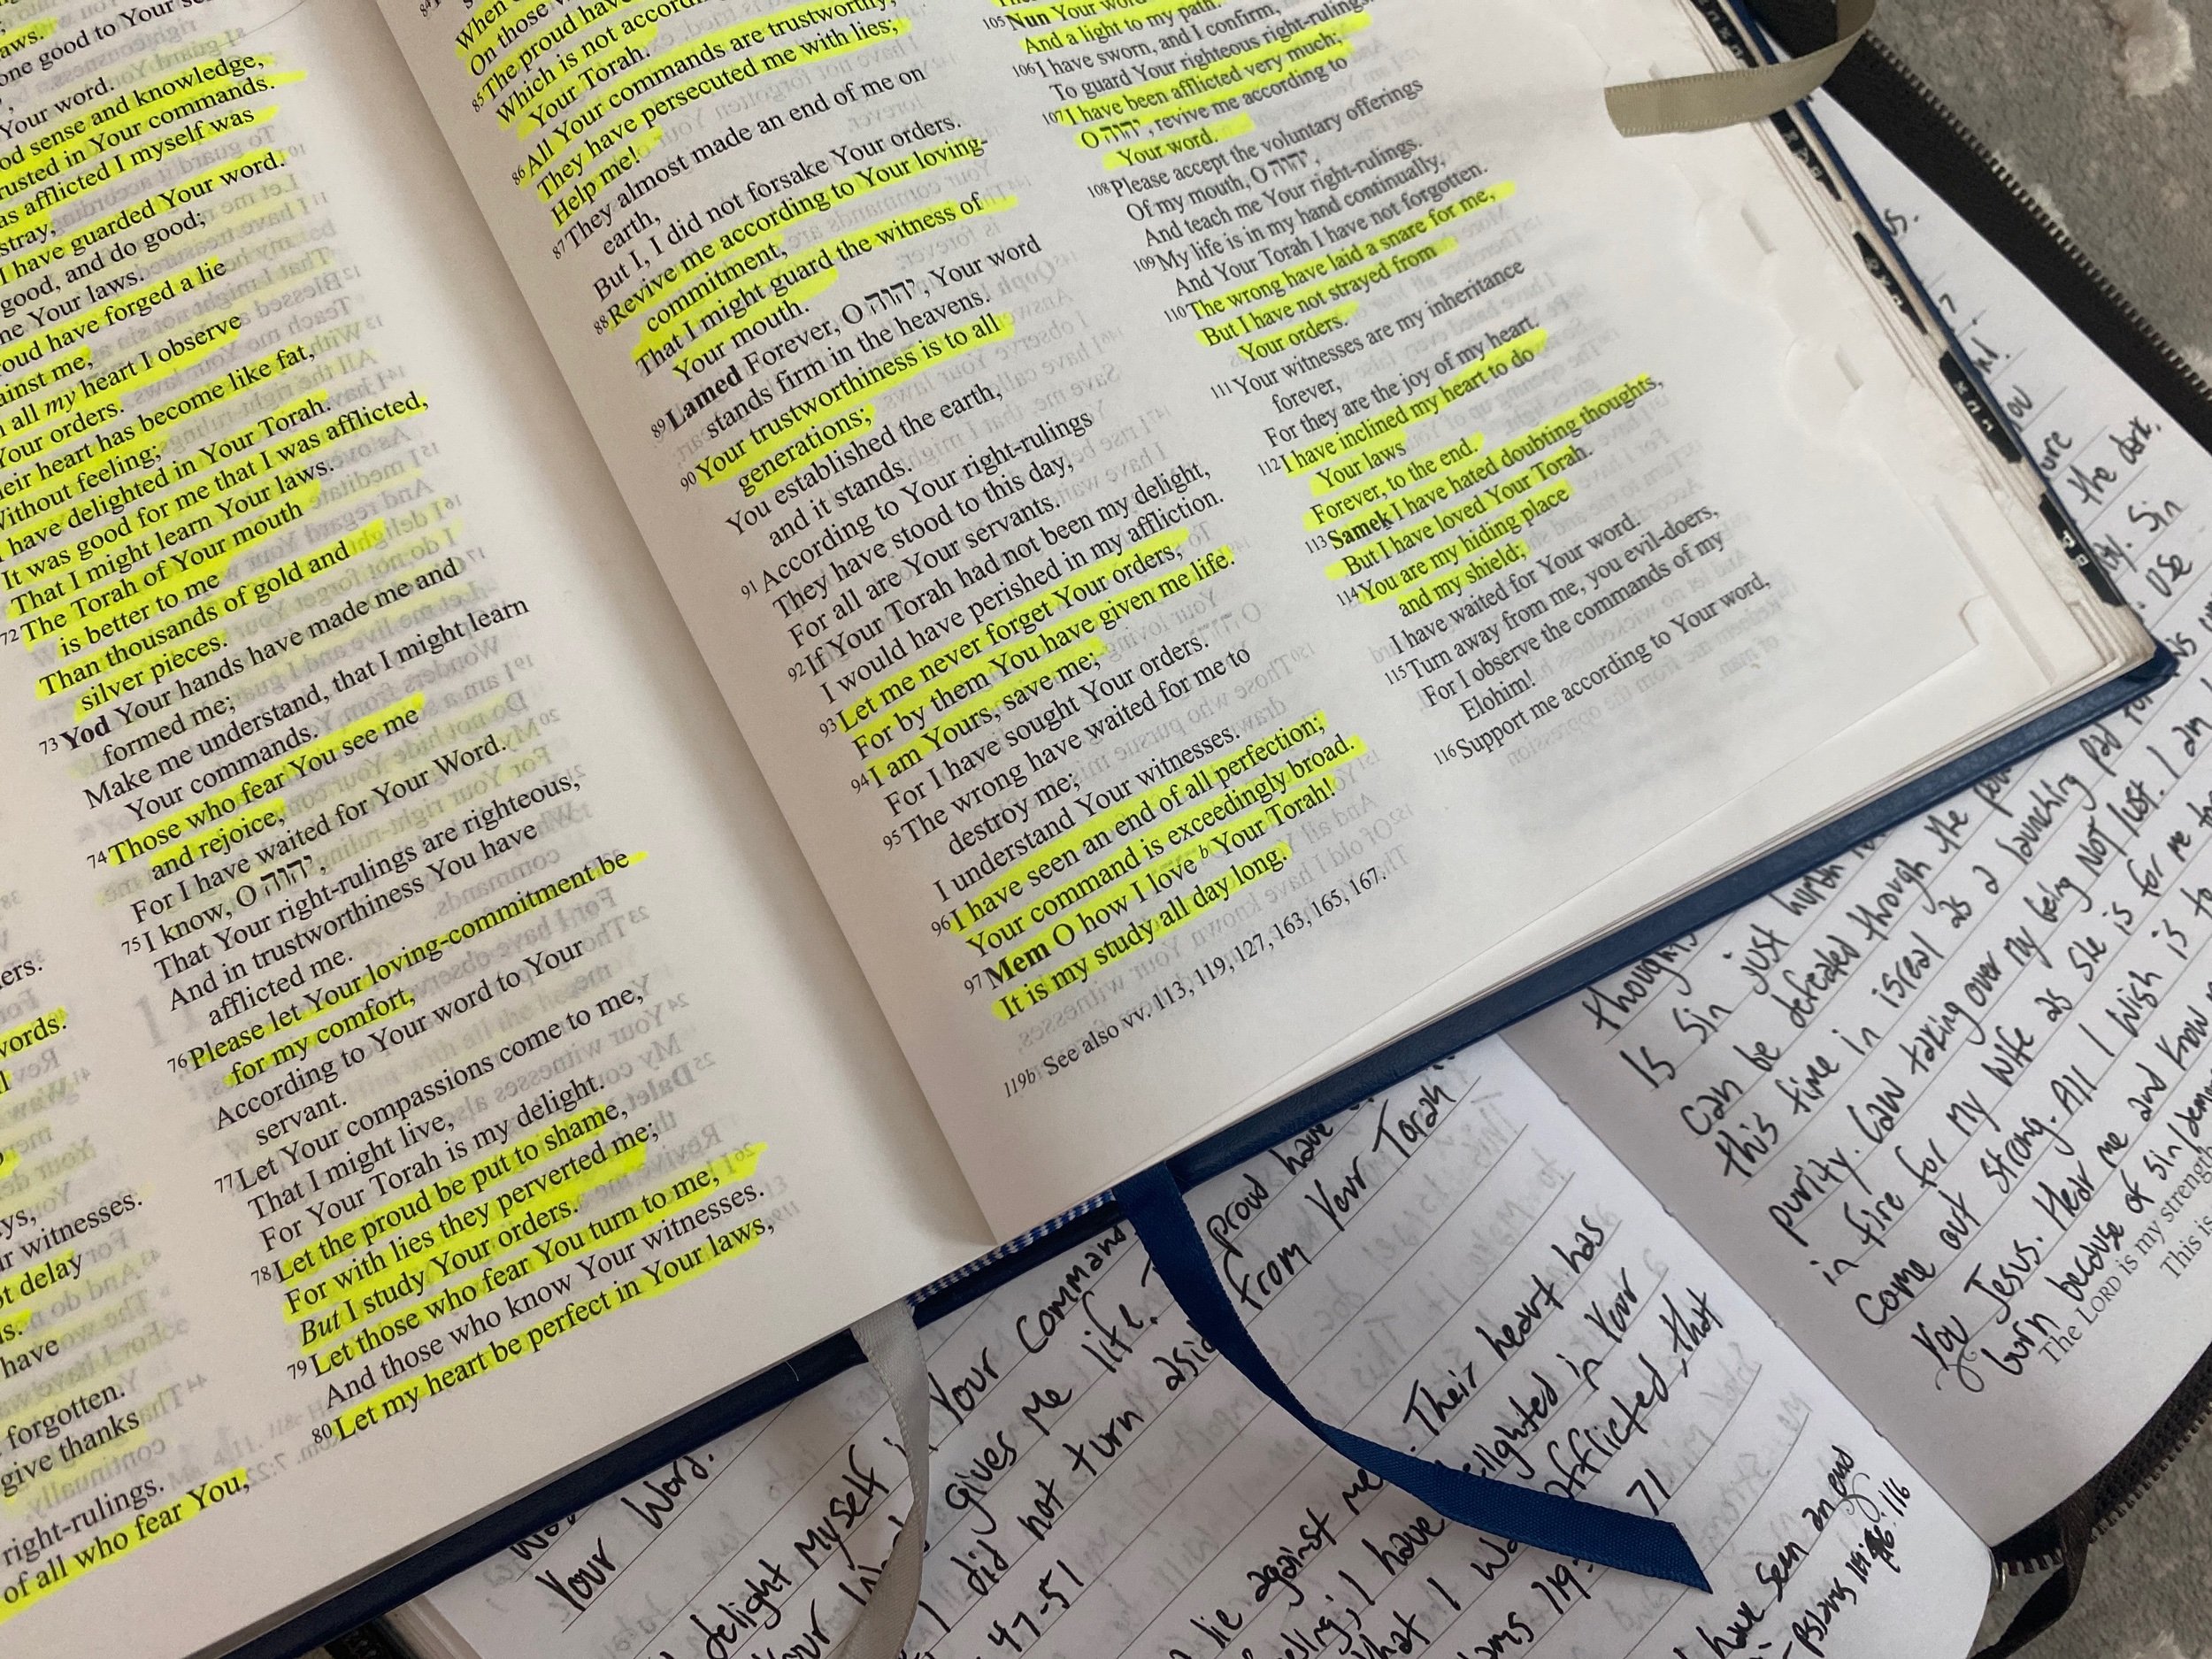 aws.
one good to Your
Your word.
od sense and knowledge,
rusted in Your commands.
as afflicted I myself was
stray,
I have guarded Your word.
good, and do good;
ne Your laws.
roud have forged a lie
ainst me,
all my heart I observe
Your orders.
eir heart has become like fat,
Without feeling;
have delighted in Your Torah.
It was good for me that I was afflicted,
That I might learn Your laws.
72 The Torah of Your mouth
is better to me
Than thousands of gold and
silver pieces.
73 Yod Your hands have made me and
formed me;
Make me understand, that I might learn
Your commands.
74 Those who fear You see me
and rejoice,
For I have waited for Your Word.
75 I know, O יהוה,
That Your right-rulings are righteous,
And in trustworthiness You have
afflicted me.
76 Please let Your loving-commitment be
for my comfort,
According to Your word to Your
servant.
77 Let Your compassions come to me,
That I might live,
For Your Torah is my delight.
78 Let the proud be put to shame,
For with lies they perverted me;
But I study Your orders.
79 Let those who fear You turn to me,
And those who know Your witnesses.
80 Let my heart be perfect in Your laws,
ers.
words.
ys,
r witnesses.
ot delay
s.
have
forgotten.
give thanks
right-rulings.
of all who fear You,
When
On those
85 The proud have
Which is not accord
Your Torah.
86 All Your commands are trustworthy;
They have persecuted me with lies;
Help me!
87 They almost made an end of me on
earth,
But I, I did not forsake Your orders.
88 Revive me according to Your loving-
commitment,
That I might guard the witness of
Your mouth.
89 Lamed Forever, O יהוה, Your word
stands firm in the heavens.
90 Your trustworthiness is to all
generations;
You established the earth,
and it stands.
91 According to Your right-rulings
They have stood to this day,
For all are Your servants.
92 If Your Torah had not been my delight,
I would have perished in my affliction.
93 Let me never forget Your orders,
For by them You have given me life.
94 I am Yours, save me;
For I have sought Your orders.
95 The wrong have waited for me to
destroy me;
I understand Your witnesses.
96 I have seen an end of all perfection;
Your command is exceedingly broad.
97 Mem O how I love b Your Torah!
It is my study all day long.
119b See also vv. 113, 119, 127, 163, 165, 167.
105 Nun Your word
And a light to my path.
106 I have sworn, and I confirm,
To guard Your righteous right-rulings.
107 I have been afflicted very much;
O יהוה, revive me according to
Your word.
108 Please accept the voluntary offerings
Of my mouth, O יהוה,
And teach me Your right-rulings.
109 My life is in my hand continually,
And Your Torah I have not forgotten.
110 The wrong have laid a snare for me,
But I have not strayed from
Your orders.
111 Your witnesses are my inheritance
forever,
For they are the joy of my heart.
112 I have inclined my heart to do
Your laws
Forever, to the end.
113 Samek I have hated doubting thoughts,
But I have loved Your Torah.
114 You are my hiding place
and my shield;
I have waited for Your word.
115 Turn away from me, you evil-doers,
For I observe the commands of my
Elohim!
116 Support me according to Your word,
Your Word.
delight myself in Your Command
gives me life. proud have
I did not turn aside from Your Torah
47-51
lie against me. Their heart has
feeling; I have delighted in Your
that I was afflicted, that
Psalms 119: 71
have seen an end
- Psalms 119: 96. 116
you
the dark.
Sin
use
thoughts
Is sin just
can be defeated through the
this time in isreal as a launching pad for
purity. Law taking over my being Not lust. I am
in fire for my wife as she is for me
Come out strong. All I wish is to
You Jesus. Hear me and know
born because of sin/
The LORD is my strength
This is